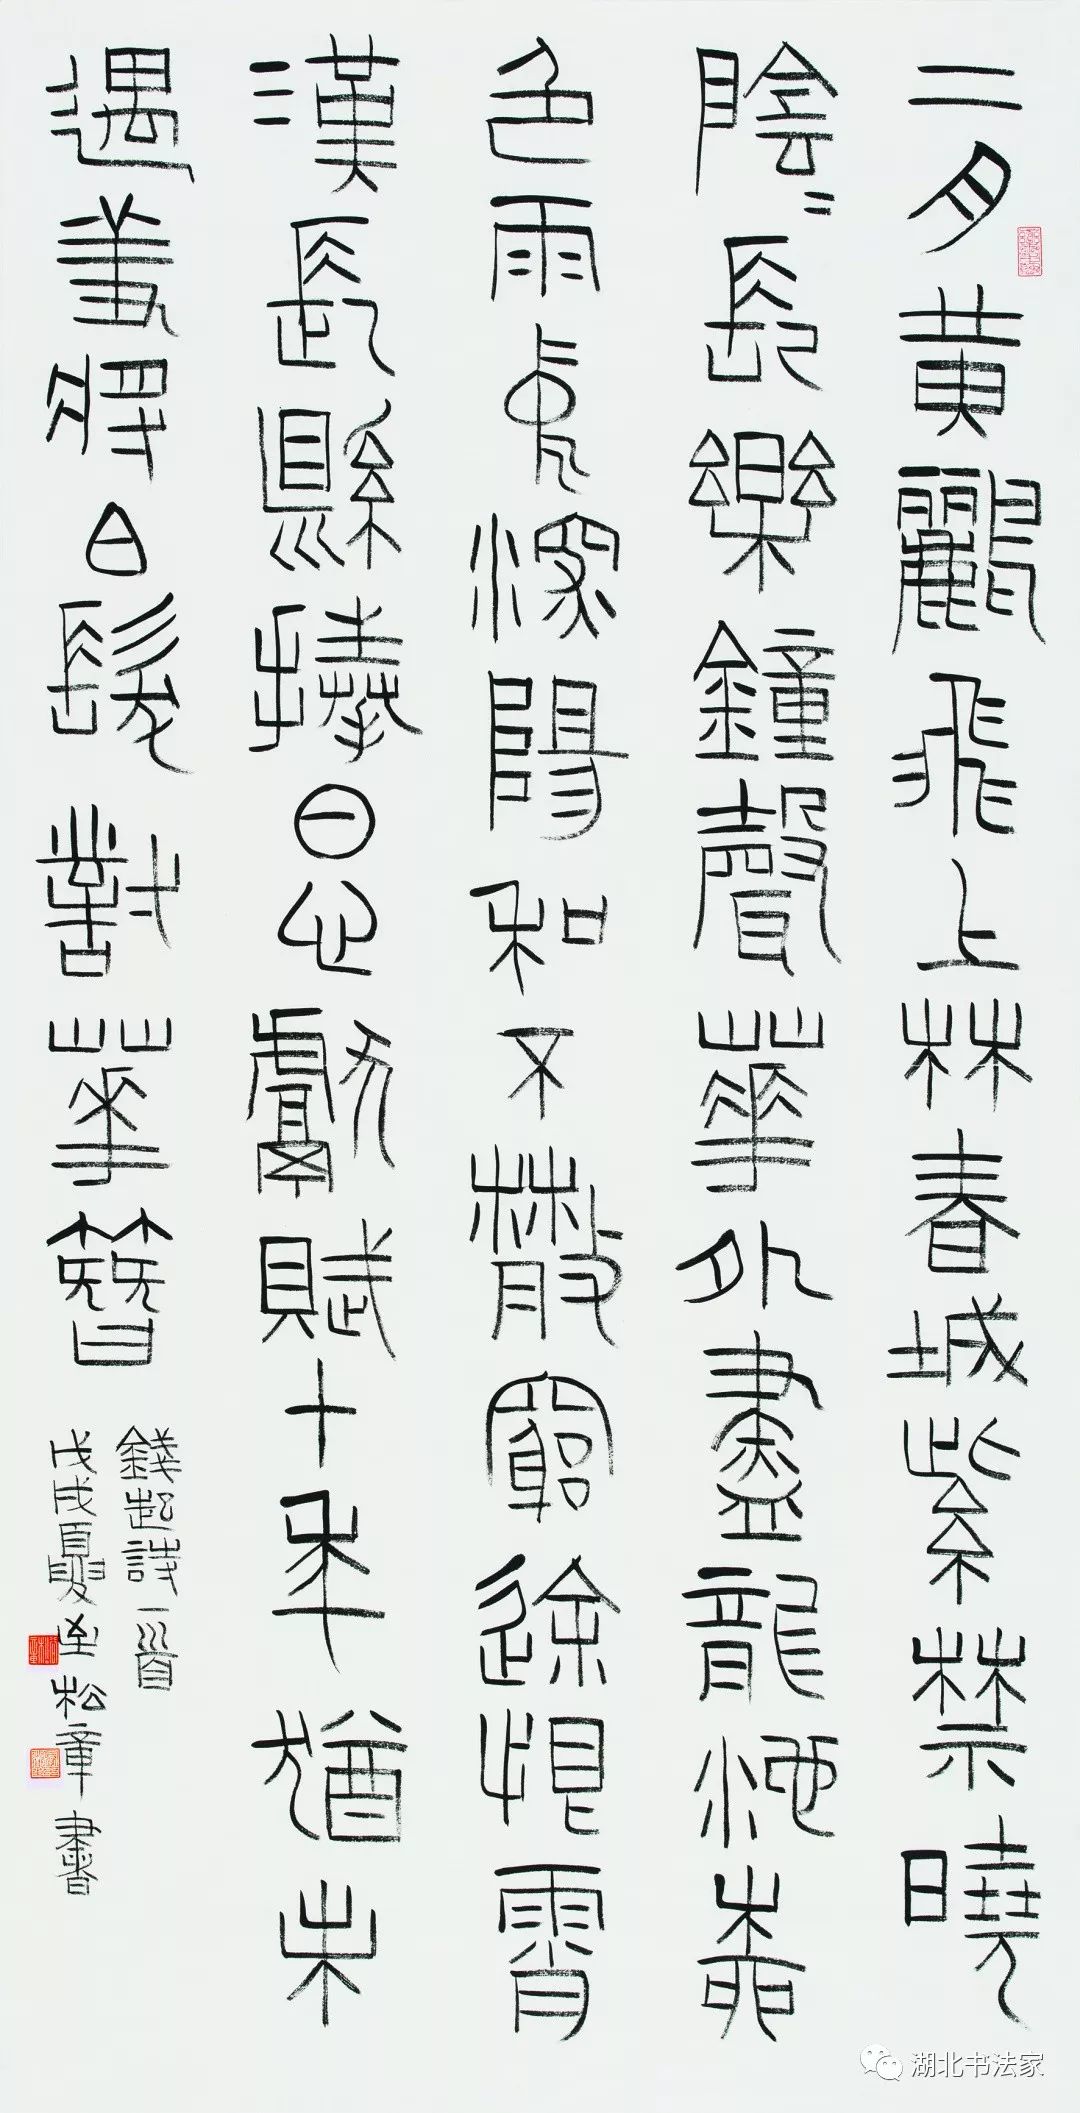 二月黃鸝飛上林春城紫禁曉
陰〻長樂鐘聲華外盡龍池柳
色雨深陽和不散窮途恨霄
漢長縣捧日心獻賦十年猶未
遇羞將白髮對華簪
錢起詩一首
戊戌夏松章書
湖北书法家